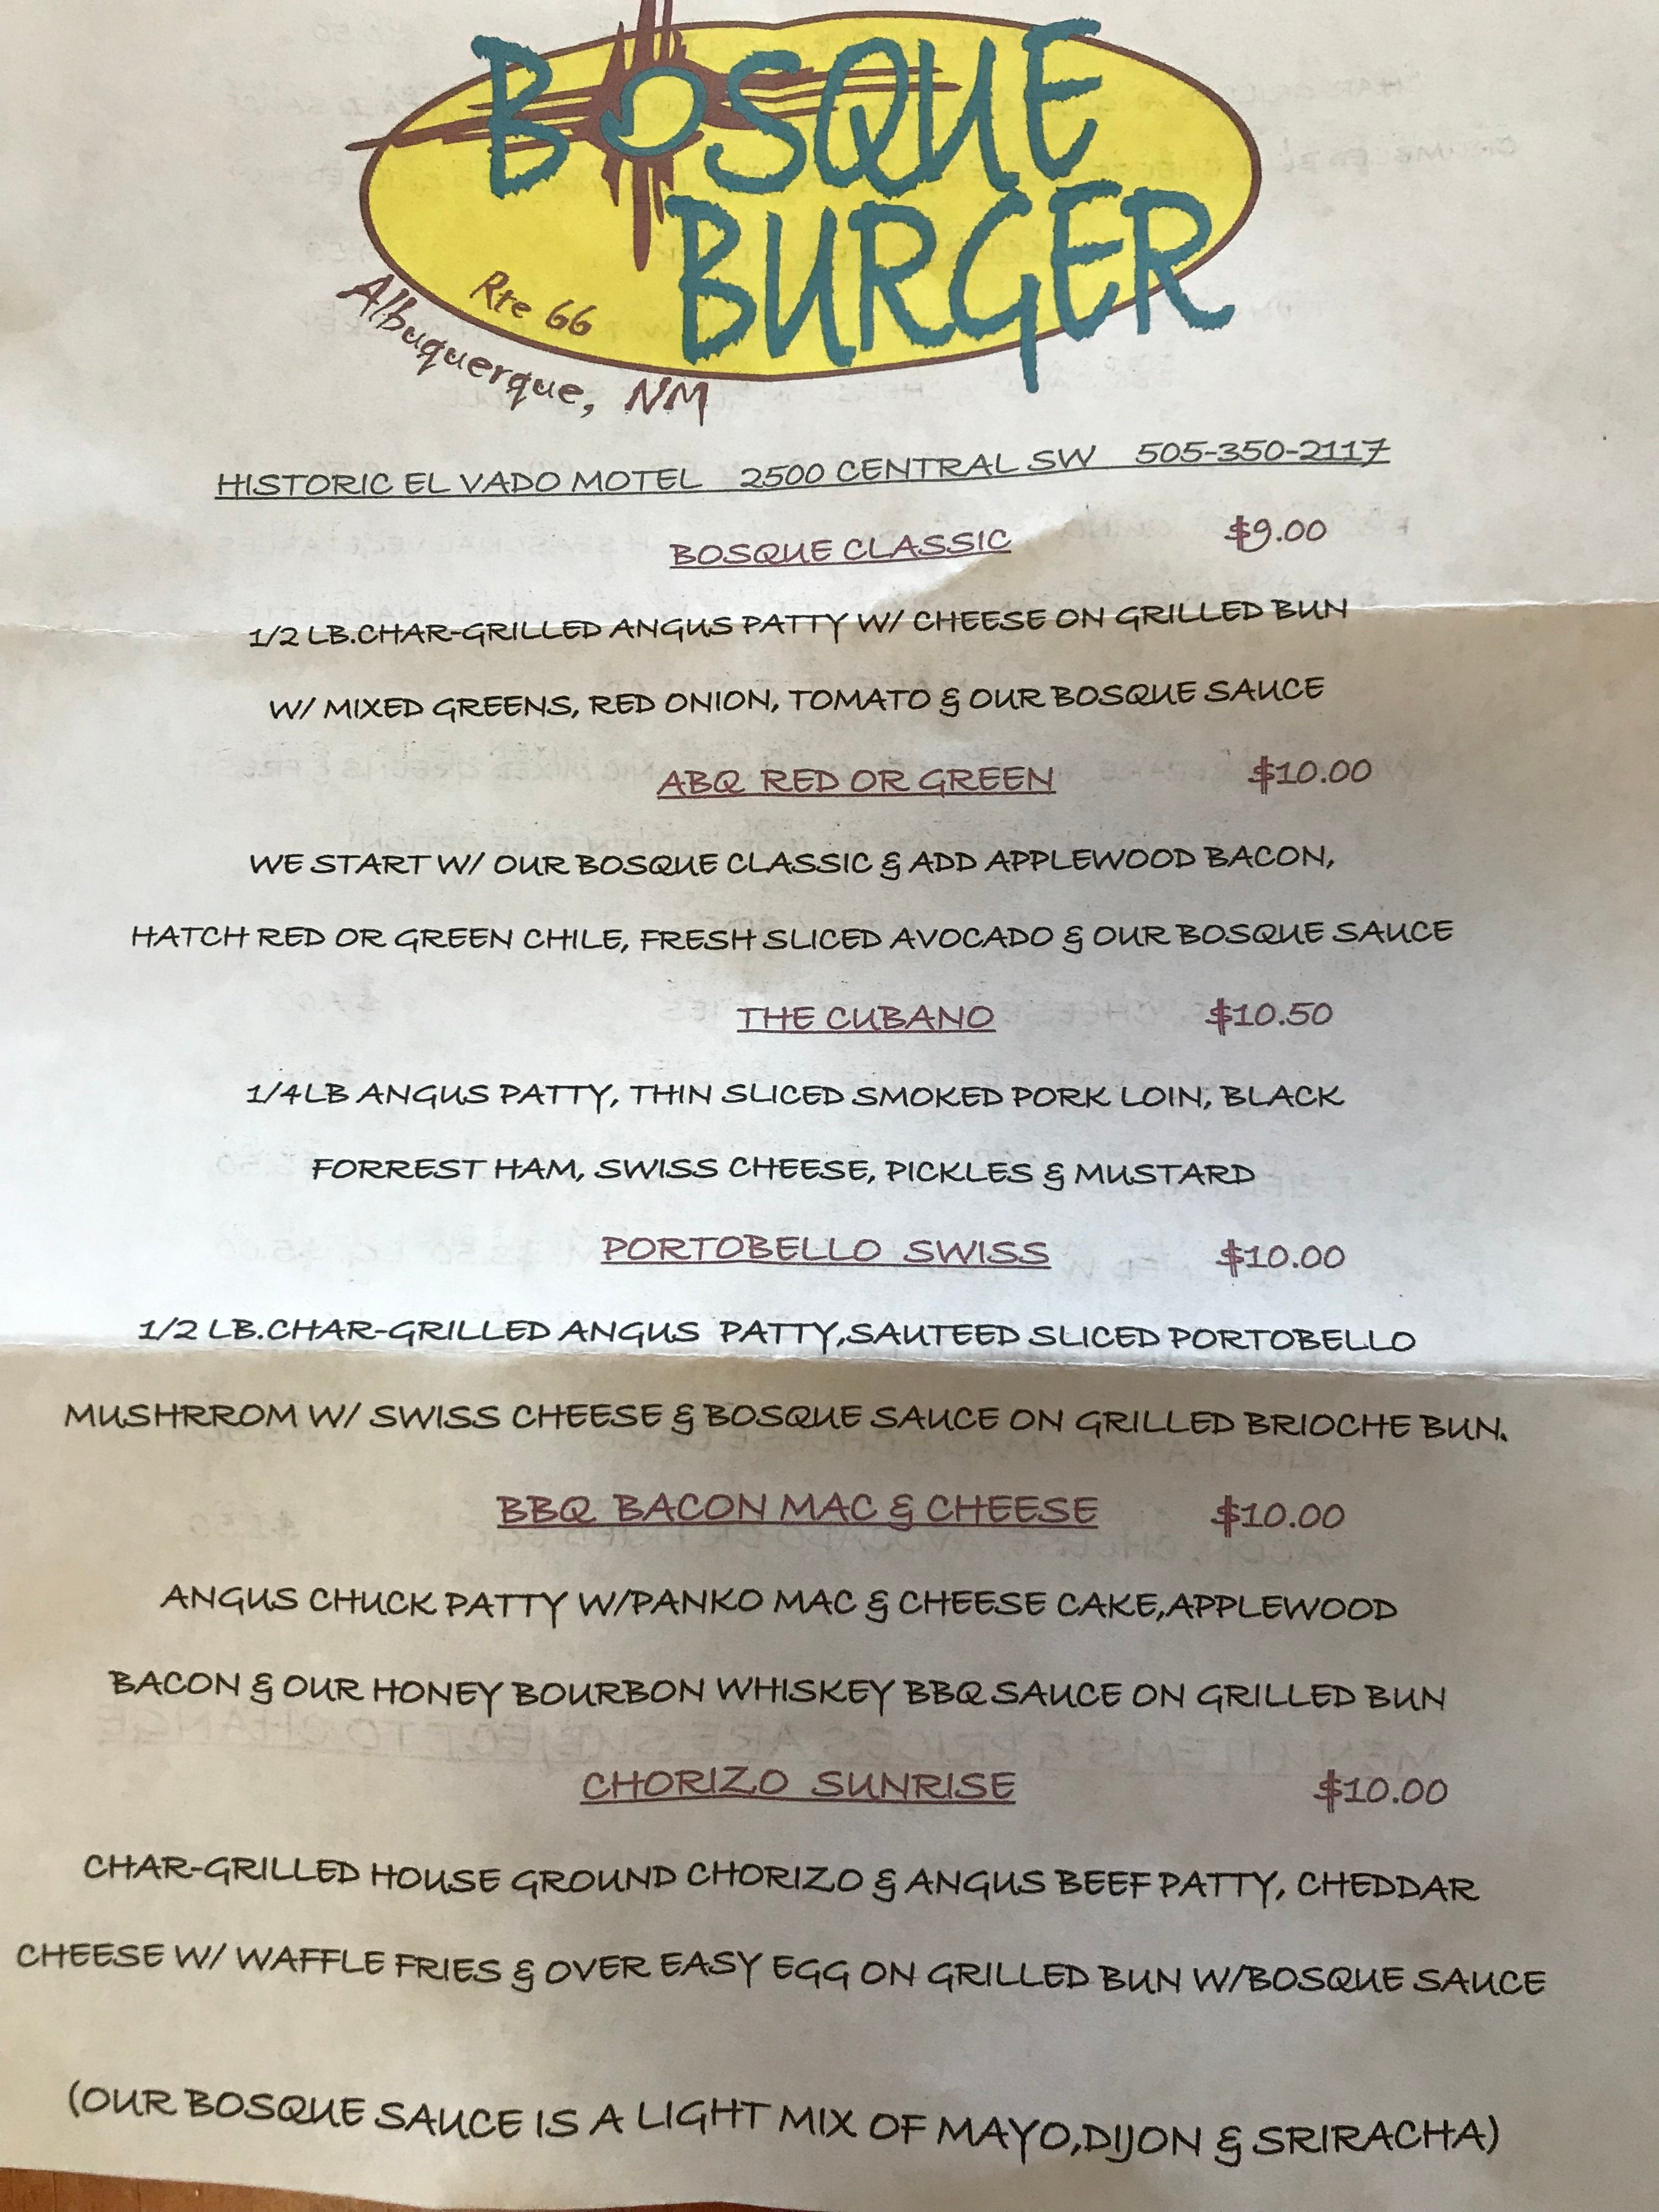 BOSQUE
BURGER
Rte 66
Albuquerque, NM
HISTORIC EL VADO MOTEL 2500 CENTRAL SW 505-350-2117
BOSQUE CLASSIC $9.00
1/2 LB.CHAR-GRILLED ANGUS PATTY W/ CHEESE ON GRILLED BUN
W/ MIXED GREENS, RED ONION, TOMATO & OUR BOSQUE SAUCE
ABQ RED OR GREEN $10.00
WE START W/ OUR BOSQUE CLASSIC & ADD APPLEWOOD BACON,
HATCH RED OR GREEN CHILE, FRESH SLICED AVOCADO & OUR BOSQUE SAUCE
THE CUBANO $10.50
1/4LB ANGUS PATTY, THIN SLICED SMOKED PORK LOIN, BLACK
FORREST HAM, SWISS CHEESE, PICKLES & MUSTARD
PORTOBELLO SWISS $10.00
1/2 LB.CHAR-GRILLED ANGUS PATTY,SAUTEED SLICED PORTOBELLO
MUSHRROM W/ SWISS CHEESE & BOSQUE SAUCE ON GRILLED BRIOCHE BUN.
BBQ BACON MAC & CHEESE $10.00
ANGUS CHUCK PATTY W/PANKO MAC & CHEESE CAKE,APPLEWOOD
BACON & OUR HONEY BOURBON WHISKEY BBQ SAUCE ON GRILLED BUN
CHORIZO SUNRISE $10.00
CHAR-GRILLED HOUSE GROUND CHORIZO & ANGUS BEEF PATTY, CHEDDAR
CHEESE W/ WAFFLE FRIES & OVER EASY EGG ON GRILLED BUN W/BOSQUE SAUCE
(OUR BOSQUE SAUCE IS A LIGHT MIX OF MAYO,DIJON & SRIRACHA)